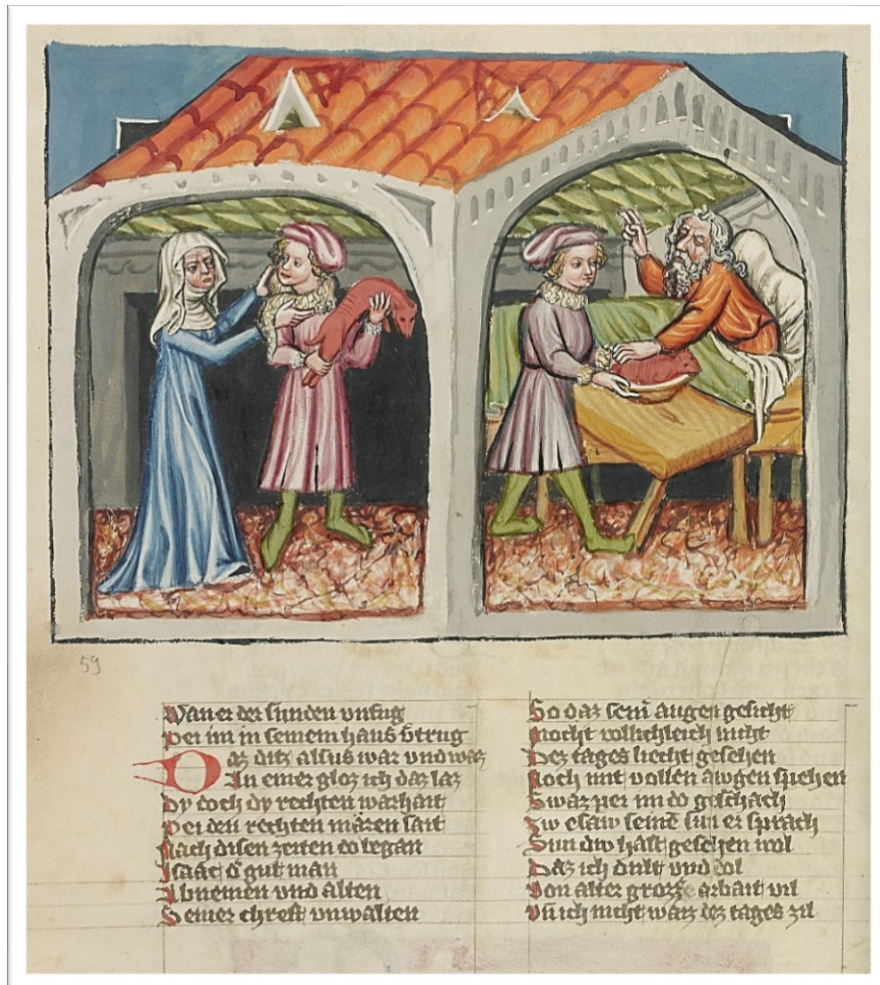 59
Wan er der sunden vnfug
Per im in seinem haus v̄trug
Daz ditz alsus war vnd waz
In einer gloz ich daz laz
Dy doch dy rechten warhait
Pei den rechten mären sait
Nach disen zeiten do began
Isaac d gut man
Abnemen vnd alten
Seiner chreft vnwalten
So daz seinē augen gesicht
Mocht vollichleich nicht
Dez tages liecht gesehen
Noch mit vollen awgen spehen
Swaz per im do geschach
Zw esaw seinē sun er sprach
Sun dw hast gesehen wol
Daz ich dult vnd dol
Von alter grozze arbait vil
Vn̄ ich nicht waiz dez tages zil